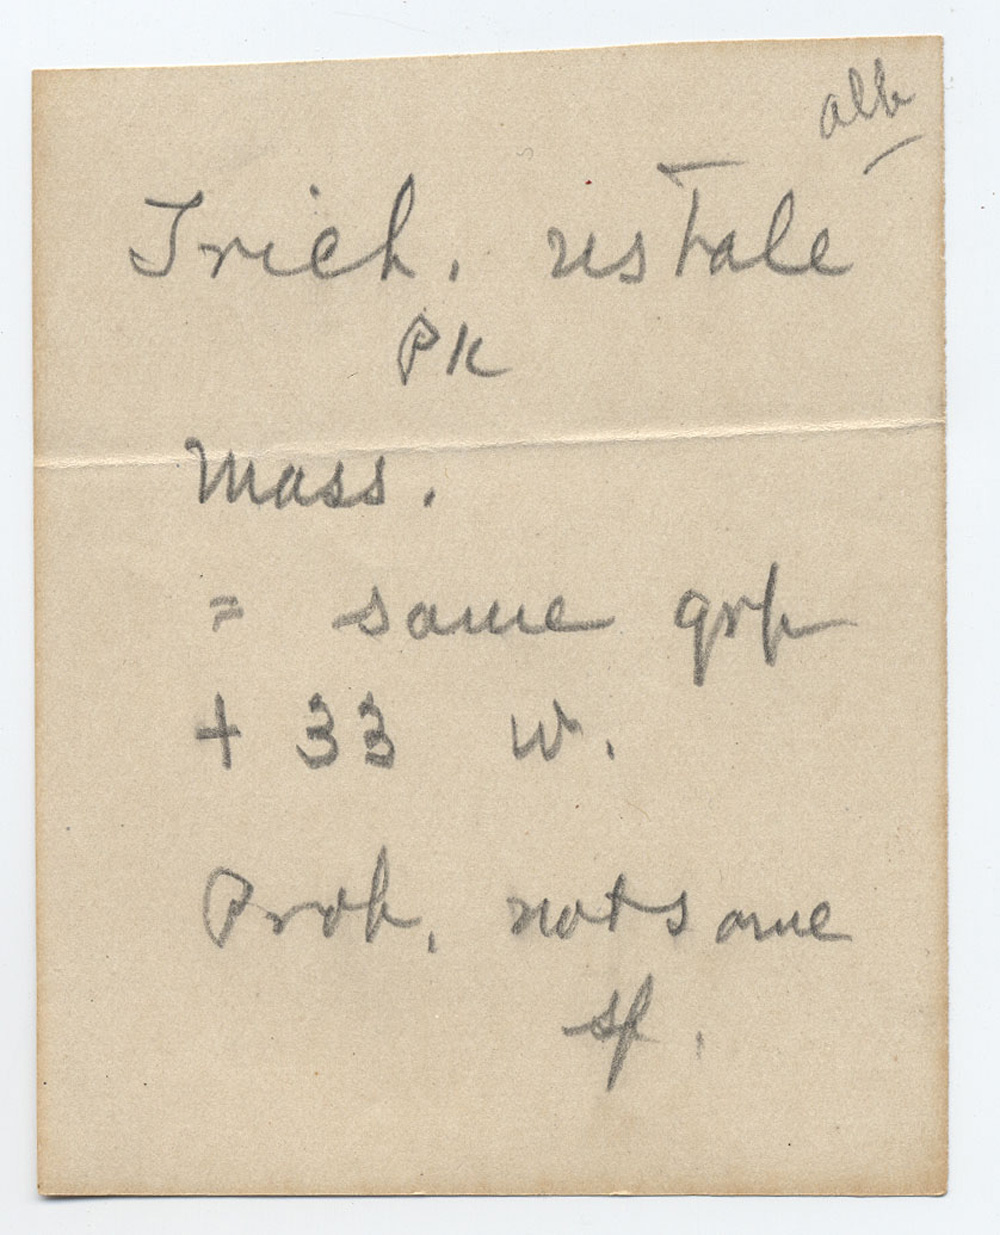 alb
Trich. ustale
PK
Mass.
= same grp
+ 33 w.
Prob. not same
sp.